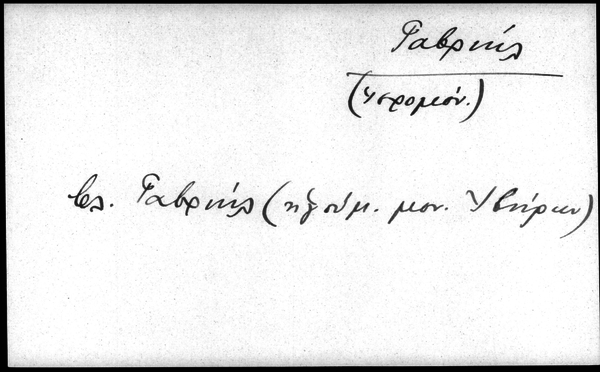 Γαβριήλ
(Ἱερομόν.)
βλ. Γαβριήλ (ηγούμ. μον. Ἰβήρων)